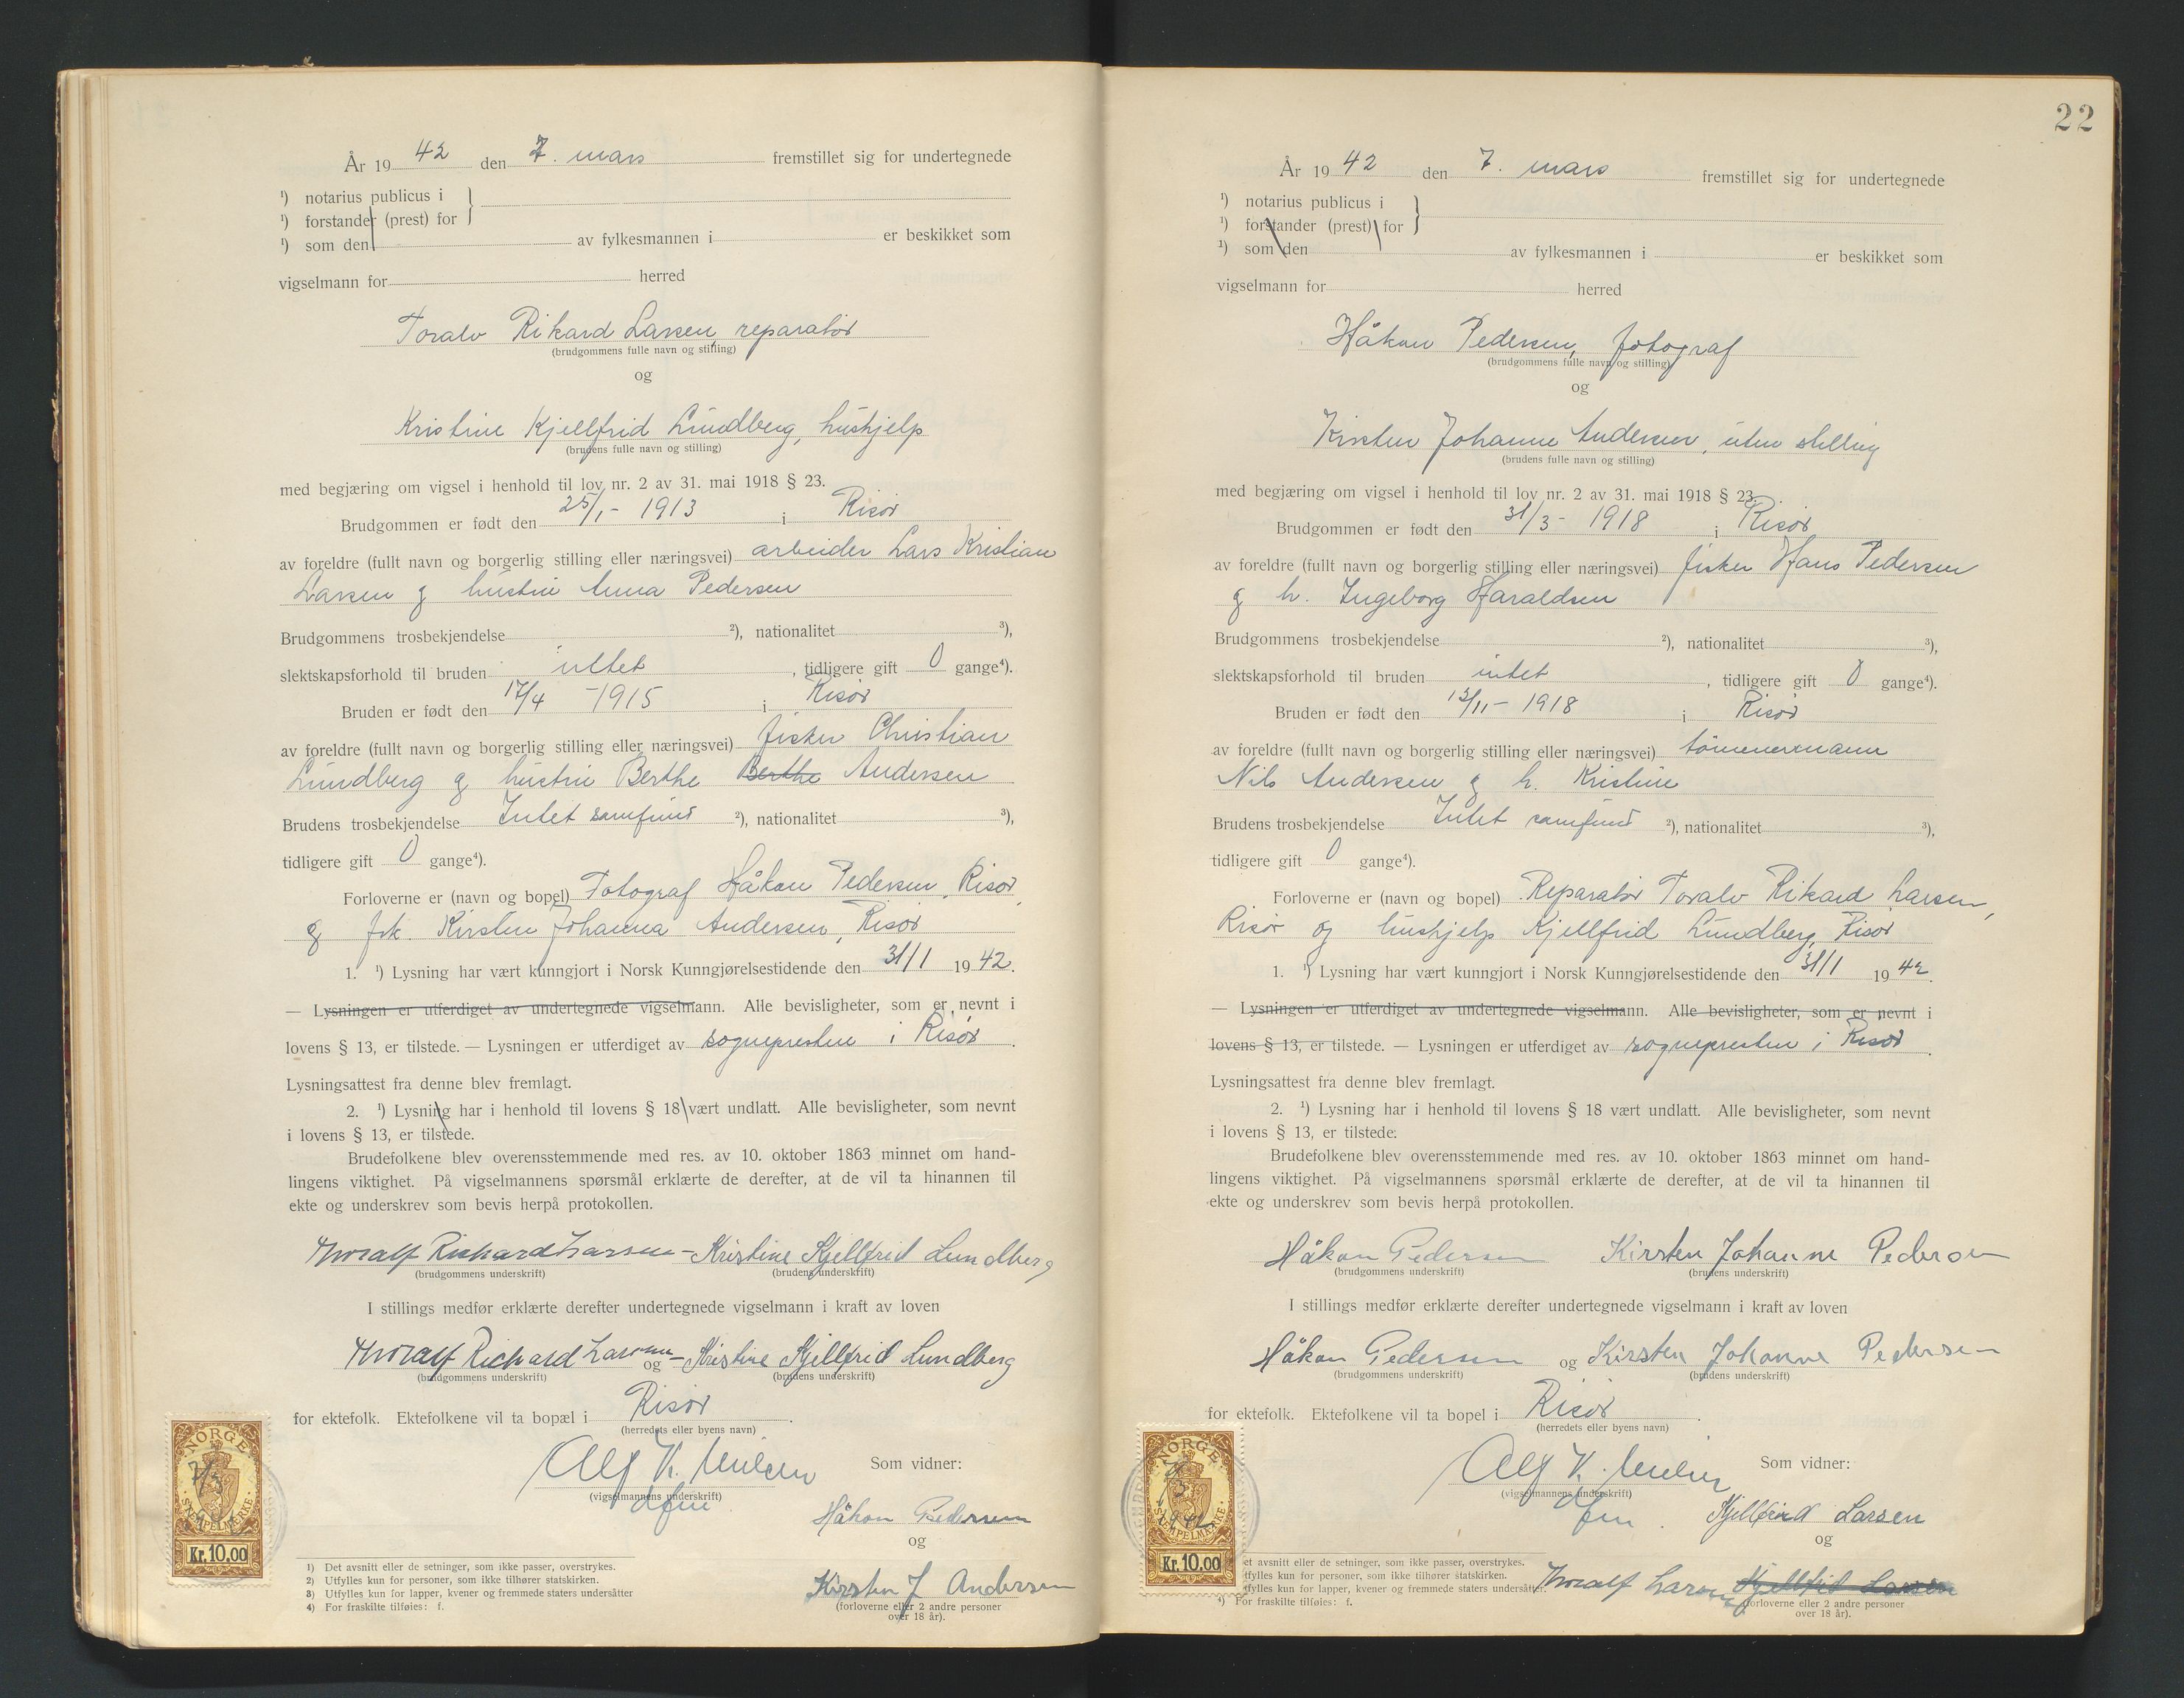 År 19 42 den 7. mars fremstillet sig for undertegnede
¹) notarius publicus i
¹) forstander (prest) for
¹) som den av fylkesmannen i er beskikket som
vigselmann for herred
Toralv Rikard Larsen, reparatør
(brudgommens fulle navn og stilling)
og
Kristine Kjellfrid Lundberg, hushjelp
(brudens fulle navn og stilling)
med begjæring om vigsel i henhold til lov nr. 2 av 31. mai 1918 § 23.
Brudgommen er født den 25/1 - 1913 i Risør
av foreldre (fullt navn og borgerlig stilling eller næringsvei) arbeider Lars Kristian
Larsen og hustru Anna Pedersen
Brudgommens trosbekjendelse ²), nationalitet ³),
slektskapsforhold til bruden intet, tidligere gift 0 gange⁴).
Bruden er født den 17/4 - 1915 i Risør
av foreldre (fullt navn og borgerlig stilling eller næringsvei) fisker Christian
Lundberg og hustru Berthe Berthe Andersen
Brudens trosbekjendelse Intet samfund ²), nationalitet ³),
tidligere gift 0 gange⁴).
Forloverne er (navn og bopel) Fotograf Håkon Pedersen, Risør,
og frk. Kirsten Johanna Andersen, Risør
1. ¹) Lysning har vært kunngjort i Norsk Kunngjørelsestidende den 31/1 19 42.
— Lysningen er utferdiget av undertegnede vigselmann. Alle bevisligheter, som er nevnt i
lovens § 13, er tilstede. — Lysningen er utferdiget av sognepresten i Risør.
Lysningsattest fra denne blev fremlagt.
2. ¹) Lysning har i henhold til lovens § 18 vært undlatt. Alle bevisligheter, som nevnt
i lovens § 13, er tilstede.
Brudefolkene blev overensstemmende med res. av 10. oktober 1863 minnet om hand-
lingens viktighet. På vigselmannens spørsmål erklærte de derefter, at de vil ta hinannen til
ekte og underskrev som bevis herpå protokollen.
Thoralf Richard Larsen - Kristine Kjellfrid Lundberg
(brudgommens underskrift) (brudens underskrift)
I stillings medfør erklærte derefter undertegnede vigselmann i kraft av loven
Thoralf Richard Larsen og - Kristine Kjellfrid Lundberg
(brudgommens underskrift) (brudens underskrift)
for ektefolk. Ektefolkene vil ta bopæl i Risør.
(herredets eller byens navn)
Alf K. Som vidner:
(vigselmannens underskrift)
Håkon Pedersen
og
Kirsten J Andersen
(forloverne eller 2 andre personer
over 18 år).
NORGE
STEMPELMERKE
Kr. 10.00
1) Det avsnitt eller de setninger, som ikke passer, overstrykes.
2) Utfylles kun for personer, som ikke tilhører statskirken.
3) Utfylles kun for lapper, kvener og fremmede staters undersåtter
4) For fraskilte tilføies: f.
22
År 19 42 den 7. mars fremstillet sig for undertegnede
¹) notarius publicus i
¹) forstander (prest) for
¹) som den av fylkesmannen i er beskikket som
vigselmann for herred
Håkon Pedersen, fotograf
(brudgommens fulle navn og stilling)
og
Kirsten Johanne Andersen, uten stilling
(brudens fulle navn og stilling)
med begjæring om vigsel i henhold til lov nr. 2 av 31. mai 1918 § 23.
Brudgommen er født den 31/3 - 1918 i Risør
av foreldre (fullt navn og borgerlig stilling eller næringsvei) fisker Hans Pedersen
og h. Ingeborg Haraldsen
Brudgommens trosbekjendelse ²), nationalitet ³),
slektskapsforhold til bruden intet, tidligere gift 0 gange⁴).
Bruden er født den /11 - 1918 i Risør
av foreldre (fullt navn og borgerlig stilling eller næringsvei) tømmermann
Nils Andersen og h. Kristine
Brudens trosbekjendelse Intet samfund ²), nationalitet ³),
tidligere gift 0 gange⁴).
Forloverne er (navn og bopel) Reparatør Toralv Rikard Larsen,
Risør og hushjelp Kjellfrid Lundberg, Risør
1. ¹) Lysning har vært kunngjort i Norsk Kunngjørelsestidende den 31/1 19 42.
— Lysningen er utferdiget av undertegnede vigselmann. Alle bevisligheter, som er nevnt i
lovens § 13, er tilstede. — Lysningen er utferdiget av sognepresten i Risør.
Lysningsattest fra denne blev fremlagt.
2. ¹) Lysning har i henhold til lovens § 18 vært undlatt. Alle bevisligheter, som nevnt
i lovens § 13, er tilstede.
Brudefolkene blev overensstemmende med res. av 10. oktober 1863 minnet om hand-
lingens viktighet. På vigselmannens spørsmål erklærte de derefter, at de vil ta hinannen til
ekte og underskrev som bevis herpå protokollen.
Håkon Pedersen Kirsten Johanne Pedersen
(brudgommens underskrift) (brudens underskrift)
I stillings medfør erklærte derefter undertegnede vigselmann i kraft av loven
Håkon Pedersen og Kirsten Johanne Pedersen
(brudgommens underskrift) (brudens underskrift)
for ektefolk. Ektefolkene vil ta bopel i Risør.
(herredets eller byens navn)
Alf K. Som vidner:
(vigselmannens underskrift)
Kjellfrid Larsen
og
Thoralf Larsen Kjellfrid Larsen
(forloverne eller 2 andre personer
over 18 år).
NORGE
STEMPELMERKE
Kr. 10.00
et avsnitt eller de setninger, som ikke passer, overstrykes.
tfylles kun for personer, som ikke tilhører statskirken.
tfylles kun for lapper, kvener og fremmede staters undersåtter.
⁴) For fraskilte tilføies: f.